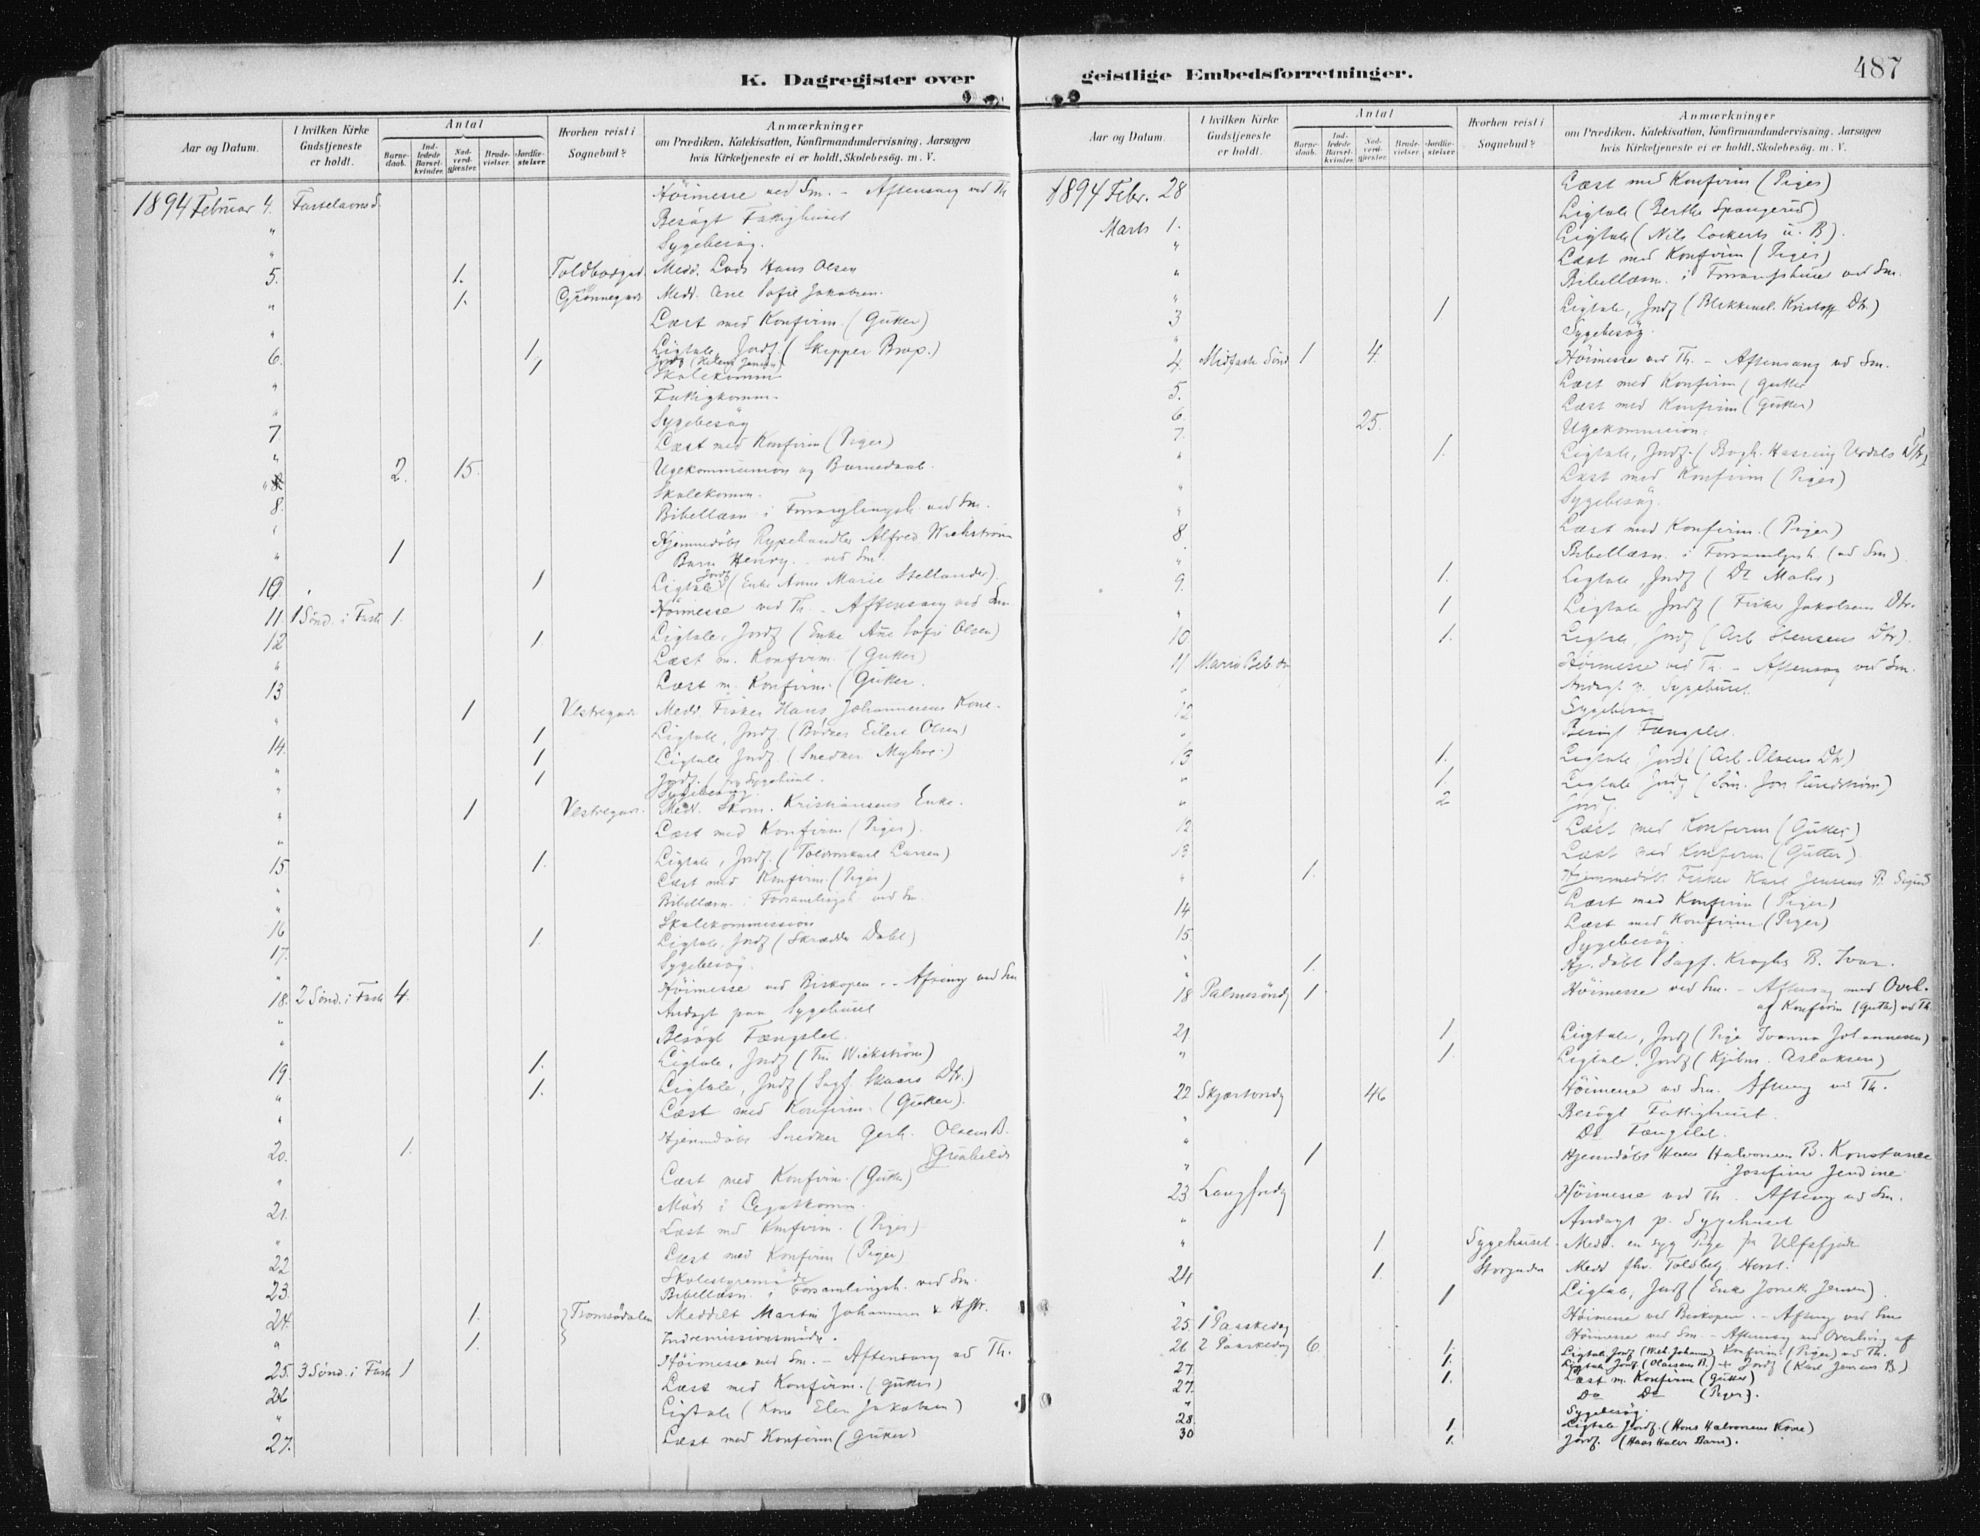 K. Dagregister over geistlige Embedsforretninger.
487
Aar og Datum.
I hvilken Kirke Gudstjeneste er holdt.
Antal
Barnedaab.
Indledede Barselkvinder.
Nadverdgjester.
Brudevielser.
Jordfæstelser.
Hvorhen reist i Sognebud?
Anmærkninger
om Prædiken, Katekisation, Konfirmandundervisning, Aarsagen
hvis Kirketjeneste ei er holdt, Skolebesøg, m. V.
1894 Februar 4. Fastelavnsd. Höimesse ved Sm. - Aftensang ved Th
" Besögt Fattighuset
" Sygebesög.
5. 1. Toldbodgad. Medd. Lods Hans Olsen
" 1. Grønnegad. Medd. Ane Sofie Jakobsen.
" Læst med Konfirm. (Gutter)
6. 1 Ligtale, Jordf. (Skipper )
1 Jordf
" Skolekomm
" Fattigkomm.
" Sygebesög
7 Læst med Konfirm (Piger)
" 2. 15. Ugekommunion og Barnedaab.
" Skolekomm.
8. Bibellæsn. i Forsamlingsh. ved Sm.
" 1 Hjemmedöbt Rypehandler Alfred Wickström
Barn Henry. ved Sm.
10. 1 Ligtale Jordf (Enke Anne Marie Stellander)
11. 1 Sönd. i Faste 1. Höimesse ved Th. - Aftensang ved Sm
12 1. Ligtale, Jordf (Enke Ane Sofie Olsen)
" Læst m. Konfirm. (Gutter)
13 Læst m. Konfirm. (Gutter.
" 1 Vestregad. Medd. Fisker Hans Johannesens Kone.
" 1 Ligtale, Jordf (Bødker Eilert Olsen)
14. 1 Ligtale Jordf. (Snedker Myhre.)
" 1 Jordf. ( Sygehuset.
" Sygebesög.
" 1 Vestregad. Medd. Skom. Kristiansens Enke.
" Læst med Konfirm (Piger).
15 1. Ligtale, Jordf. (Larsen)
" Læst med Konfirm. (Piger)
" Bibellæsn. i Forsamlingsh. ved Sm.
16 Skolekommission
17. 1. Ligtale, Jordf (Skrædder Dahl)
" Sygebesög.
18. 2 Sönd. i Faste 4. Höimesse ved Biskopen - Aftensang ved Sm
" Andagt paa Sygehuset
" Besögt Fængslet.
19. 1. Ligtale, Jordf (Wickström)
" 1. Ligtale, Jordf (Sagf. Skaars Dtr.)
" Læst med Konfirm. (Gutter).
20. 1. Hjemmdöbt Snedker Gerh. Olsens B.
" Læst med Konfirm. (Gutter)
21. Möde i Legatkomm.
" Læst med Konfirm. (Piger)
22 Læst med Konfirm (Piger)
23. Skolestyremöde
Bibellæsn. i Forsamlingsh. ved Sm.
24. 1. Tromsödalen Meddelt Martin Johannesen
" 1. Indremissionsmöde.
25. 3 Sönd. i Faste 1 Höimesse ved Sm. - Aftensang ved Th.
26 Læst med Konfirm. (Gutter)
" Ligtale (Kone Elen Jakobsen)
27. Læst med Konfirm (Gutter)
Aar og Datum.
I hvilken Kirke Gudstjeneste er holdt.
Antal
Barnedaab.
Indledede Barselkvinder.
Nadverdgjester.
Brudevielser.
Jordfæstelser.
Hvorhen reist i Sognebud?
Anmærkninger
om Prædiken, Katekisation, Konfirmandundervisning, Aarsagen
hvis Kirketjeneste ei er holdt, Skolebesøg, m. V.
1894 Febr. 28 Læst med Konfirm (Piger)
Ligtale (Berthe Spangerud)
Marts 1. Ligtale (Nils Lockerts u. B).
" Læst med Konfirm (Piger)
" Bibellæsn. i Forsamlgshuset ved Sm.
" 1 Ligtale, Jordf (Kristoff Dtr.)
3 Sygebesög.
4. Midfaste Sönd 1 4. Höimesse ved Th. - Aftensang ved Sm.
5. Læst med Konfirm (Gutter
6. Læst med Konfirm (Gutter)
7. 25. Ugekommunion.
" 1. Ligtale, Jordf. (Bogh. Verdals
" Læst med Konfirm (Piger)
" Sygebesög.
8 Læst med Konfirm. (Piger)
" Bibellæsn. i Forsamlgsh. (ved Sm).
9. 1. Ligtale, Jordf
" 1 Ligtale, Jordf (Fisker Jakobsens Dtr.
10. 1. Ligtale, Jordf (Arb. Stensens Dtr).
11 Maria Beb. Höimesse ved Th. - Aftensag ved Sm.
" Andagt p. Sygehuset.
12 Sygebesög
" Besögt Fængslet.
13 1. Ligtale Jordf (Arb. Olsens Dtr)
" 1. Ligtale Jordf (Söm. Jon Lundström)
" 2 Jordf.
12. Læst med Konfirm (Gutter)
13 Læst med Konfirm (Gutter)
" 1. Hjemmedöbt. Fisker Karl Jensens B. Sigurd
14 Læst med Konfirm (Piger)
15 Læst med Konfirm (Piger)
" Sygebesög.
" 1. Hj. döbt Sagf. Kroghs B. Ivar.
18 Palmesöndg 1 Höimesse ved Sm. - Aftensag med Overh.
af Konfirm (Gutter) ved Th.
21 1 Ligtale, Jordf (Pige Ivanna Johannesen)
" 1. Ligtale, Jordf (Kjöbm. Aslaksen)
22 Skjærtorsdg 46 Höimesse ved Sm. Aftensg ved Th.
" Besögt Fattighuset.
" Do Fængslet.
" 1 Hjemmdöbt Hans Halvorsens B. Konstanse
Josefine Jendine
23 Langfredg Höimesse ved Th. Aftensg ved Sm.
" Andagt p. Sygehuset
" 1 Sygehuset. Medd. en syg Pige fr Ulfsfjord
24 1. Storgaden Medd fhv. Toldbetj. Horst.
" 1 Ligtale, Jordf (Enke Jensen).
25. 1 Paaskedag Höimesse ved Biskopen. - Aftensg ved Sm
26 2 Paaskedag 6. Höimesse ved Sm. - Aftensag med Overhöring af
Konfirm. (Piger) ved Th.
1. Ligtale Jordf
27. 1. Ligtale Jordf (Olaisens B.) + Jordf (Karl Jensens B)
27. 1. Læst m. Konfirm (Gutter)
Do Do (Piger).
" Sygebesög.
28. 1 Ligtale Jordf. (Hans Halvorsens Kone)
30 1. Jordf. (Hans Halvs Barn).